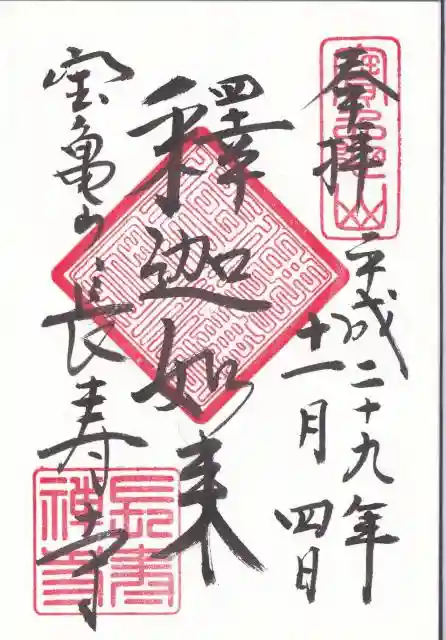 奉拝
平成二十九年
十一月四日
釋迦如来
宝亀山長寿寺
長寿禅寺